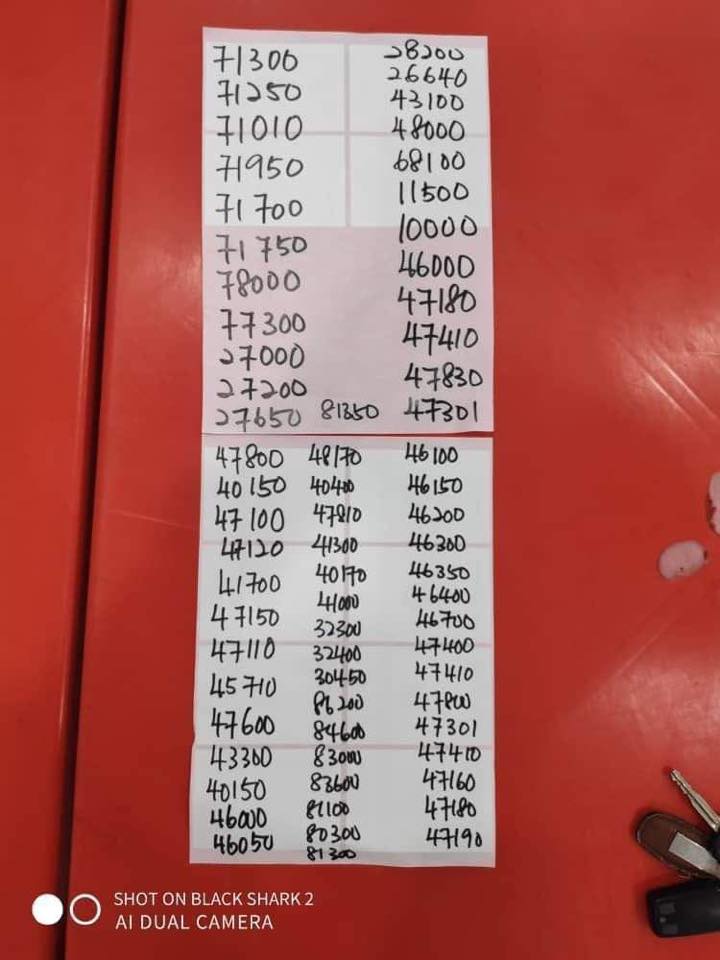 71300
71250
71010
71950
71700
71750
78000
77300
27000
27200
27650
81350
28200
26640
43100
48000
68100
11500
10000
46000
47180
47410
47830
47301
47800
40150
47100
47120
41700
47150
47110
45710
47600
43300
40150
46000
46050
48170
40400
47810
41300
40170
41000
32300
32400
30450
86200
84600
83000
83600
81100
80300
81300
46100
46150
46200
46300
46350
46400
46700
47400
47410
47800
47301
47410
47160
47180
47190
SHOT ON BLACK SHARK 2
AI DUAL CAMERA